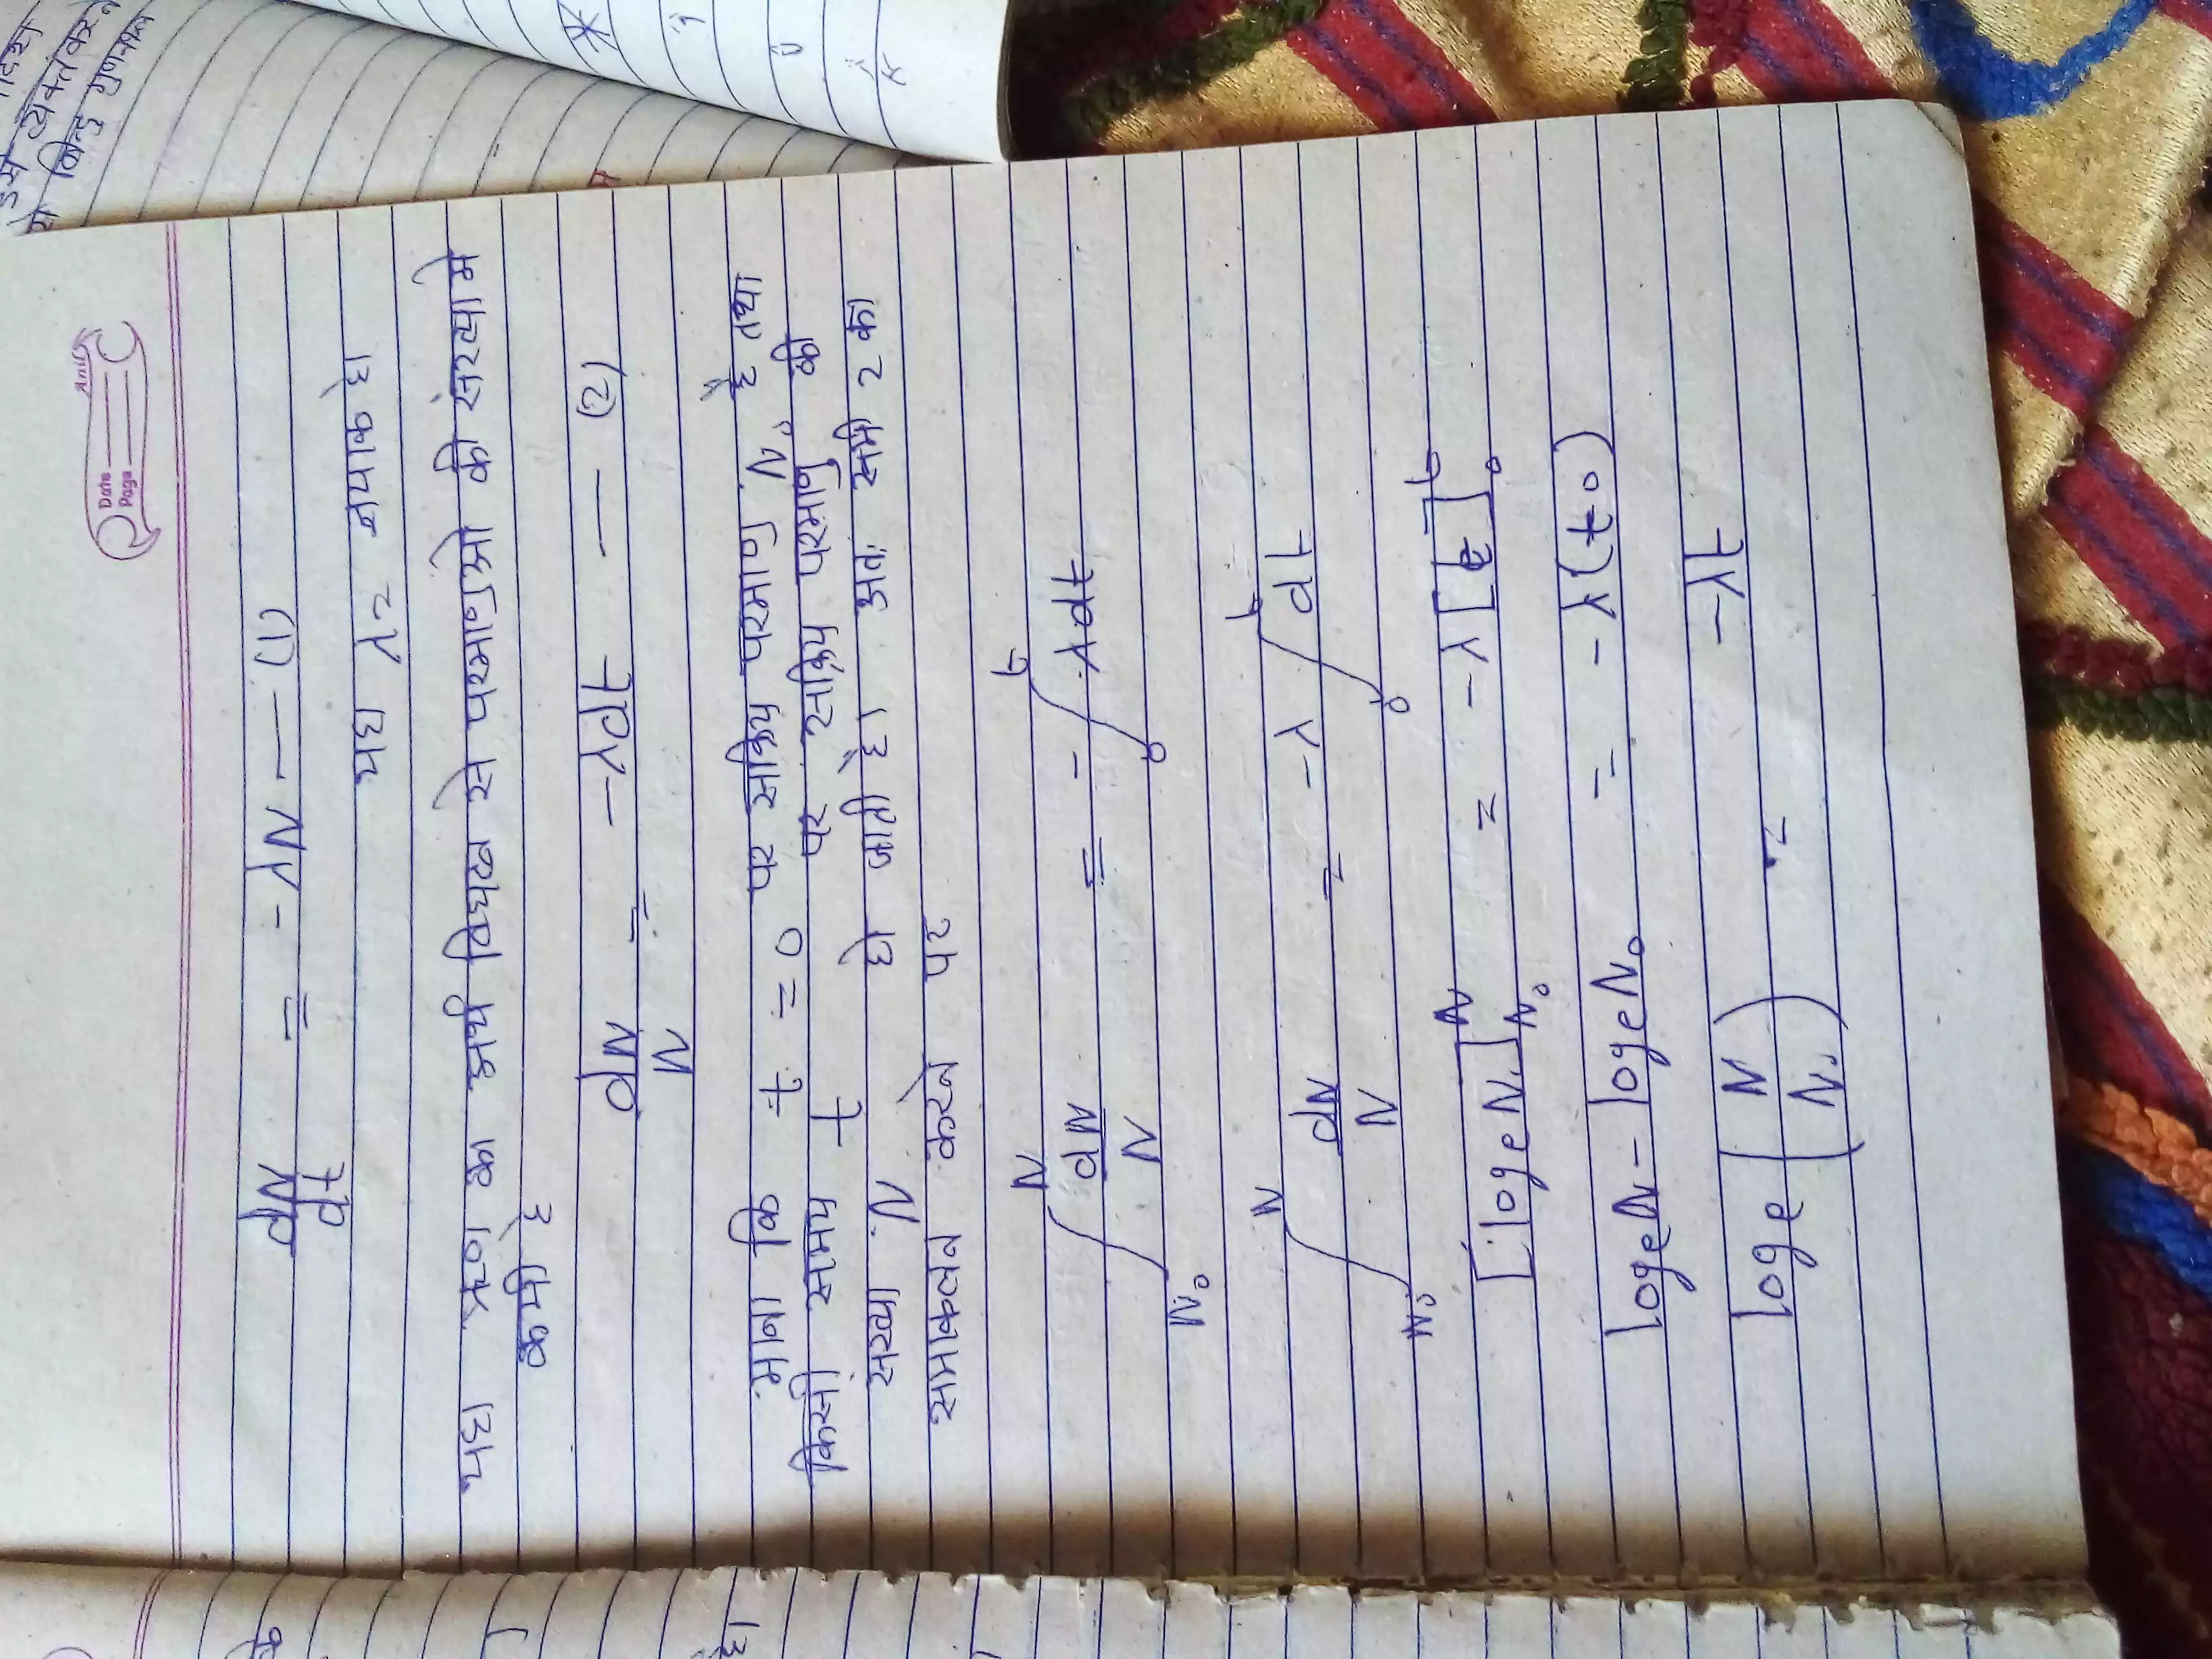 Anil
Date
Page
dN/dt = - λN — (1)
यहा λ = नयाक है।
यहा ऋण का अर्थ विघटन से परमाणुओ की संख्यामे
कमी है
dN/N = - λdt — (2)
माना कि t = 0 पर सक्रिय परमाणु N₀ है तथा
किसी समय t पर सक्रिय परमाणु की
संख्या N हो जाती है। अतः समी 2 का
समाकलन करने पर
∫_{N₀}^{N} dN/N = - ∫_{0}^{t} λdt
∫_{N₀}^{N} dN/N = -λ ∫_{0}^{t} dt
[logeN]_{N₀}^{N} = -λ [t]_{0}^{t}
logeN - logeN₀ = -λ(t-0)
loge (N/N₀) = -λt